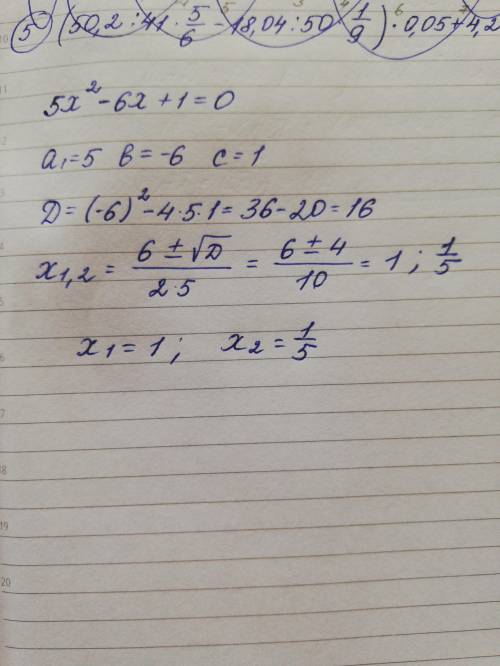 5 (50,2 : 41 · 5/6 - 18,04 : 50 1/9) · 0,05 + 4,2
5x² - 6x + 1 = 0
a₁ = 5 в = -6 c = 1
D = (-6)² - 4·5·1 = 36 - 20 = 16
x₁,₂ = (6 ± √D)/(2·5) = (6 ± 4)/10 = 1 ; 1/5
x₁ = 1 ; x₂ = 1/5